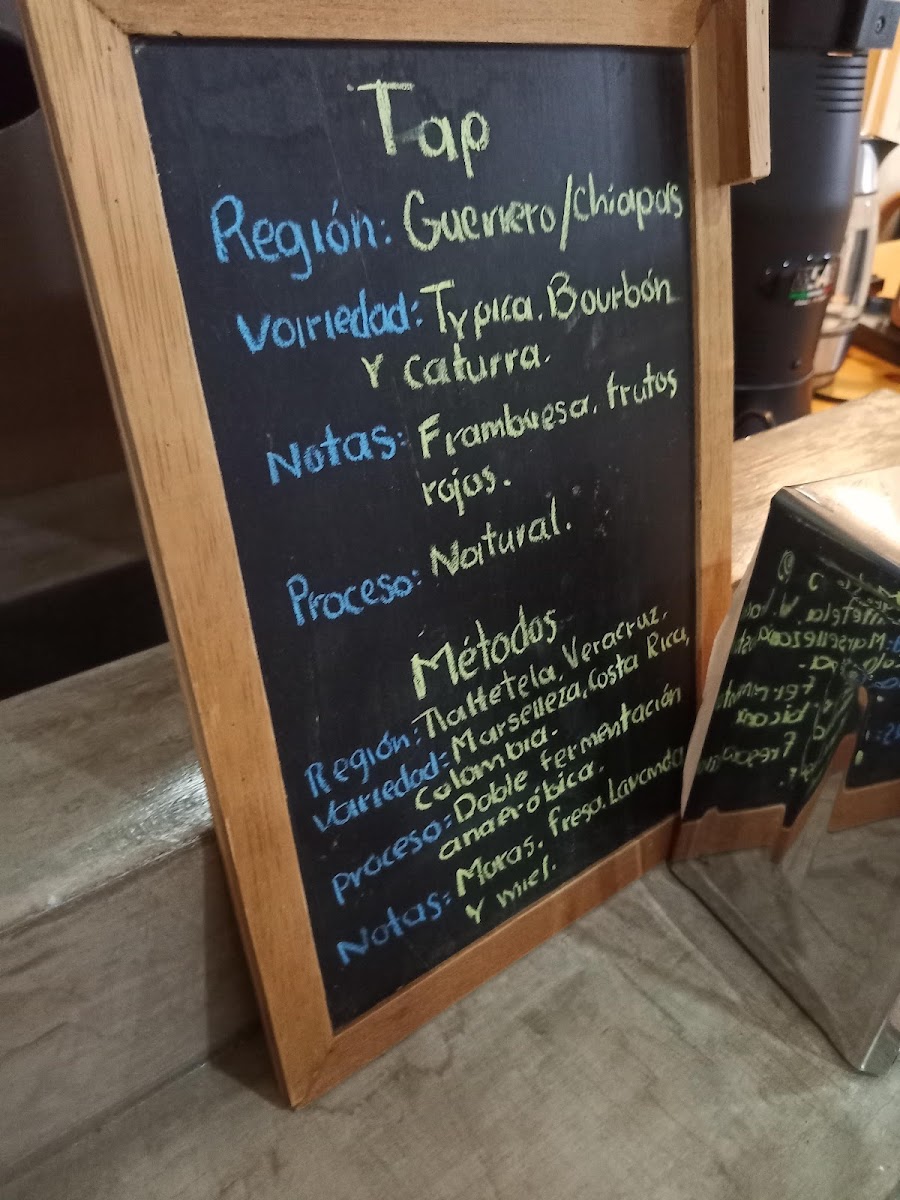 Tap
Región: Guerrero/Chiapas
Variedad: Typica, Bourbón
Y Caturra.
Notas: Frambuesa, frutos
rojos.
Proceso: Natural.
Métodos
Región: Tlaltetela, Veracruz.
Variedad: Marselleza, Costa Rica,
Colombia.
Proceso: Doble fermentación
anaeróbica.
Notas: Moras, fresa, Lavanda
y miel.